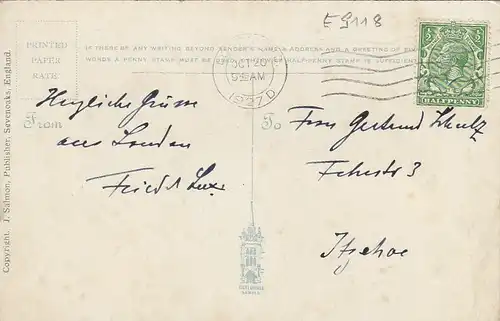 E9118
PRINTED
PAPER
RATE
IF THERE BE ANY WRITING BEYOND SENDER'S NAME & ADDRESS AND A GREETING OF FIVE
WORDS A PENNY STAMP MUST BE HALFPENNY STAMP IS SUFFICIENT
OCT 20
1927
HALFPENNY
From
To
Herzliche Grüsse
aus London
Frau Gertrud Schulz
3
Itzehoe
Copyright. J. Salmon, Publisher, Sevenoaks, England.